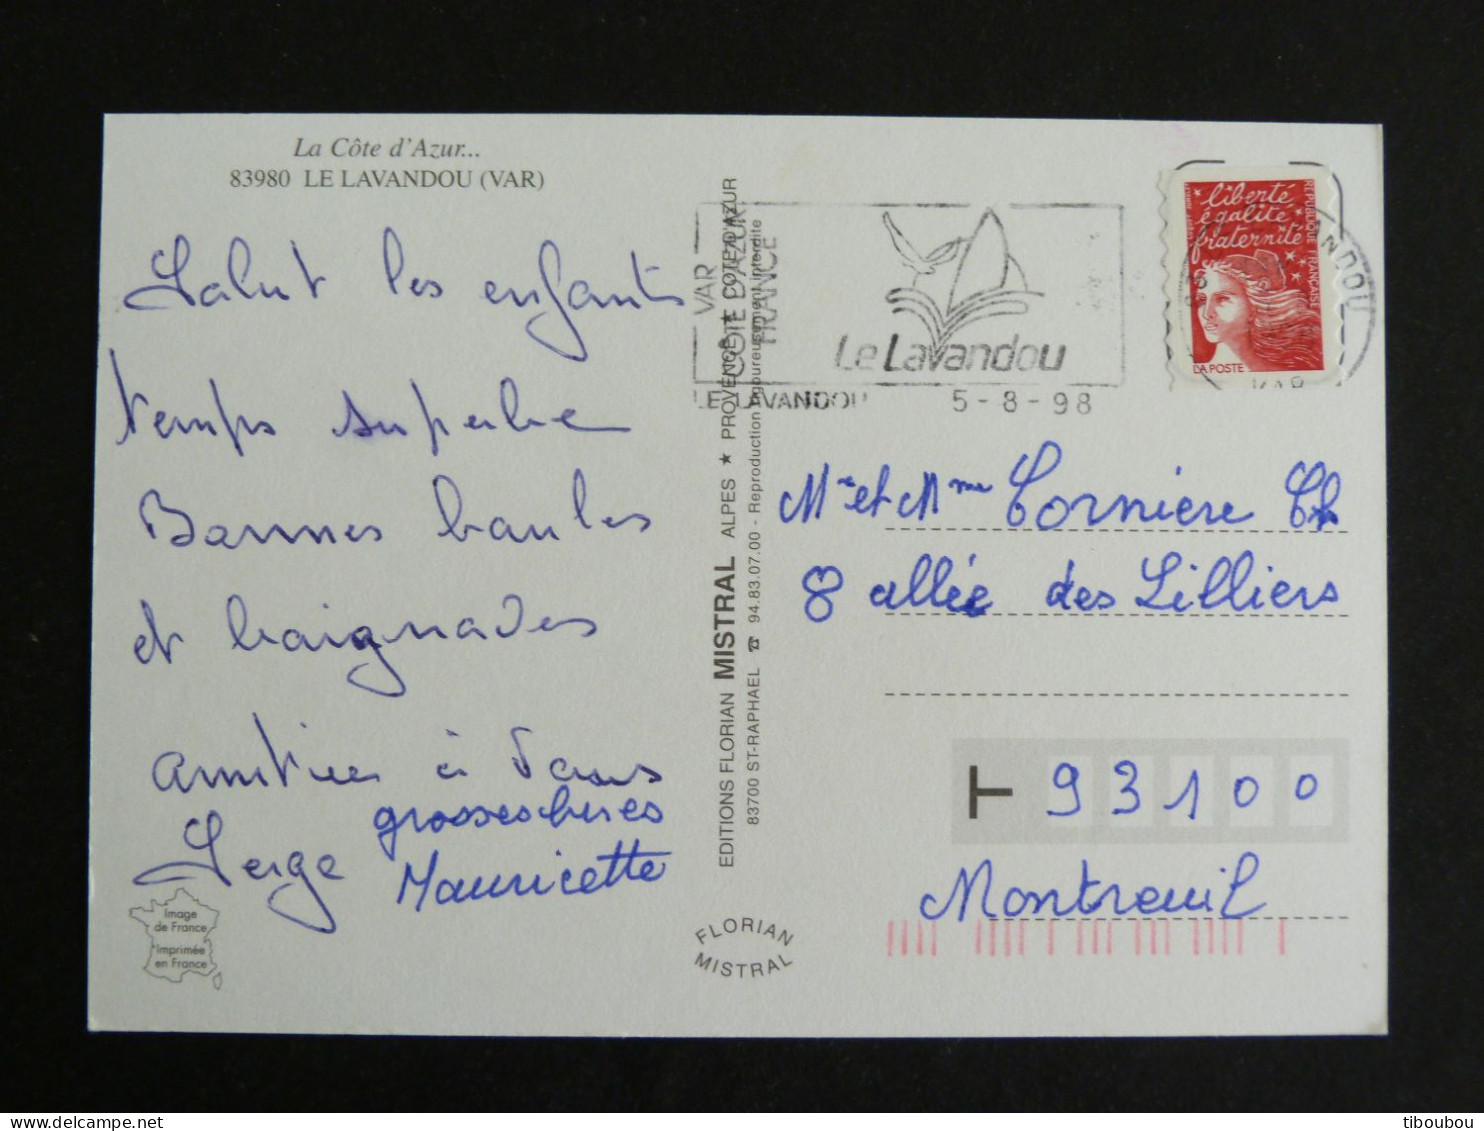 La Côte d'Azur...
83980 LE LAVANDOU (VAR)
Salut les enfants
temps superbe
Bonnes boules
et baignades
amitiés à vous
grosses bises
Serge
Mauricette
Image
de France
Imprimée
en France
EDITIONS FLORIAN MISTRAL ALPES ★ PROVENCE ★ COTE D'AZUR
83700 ST-RAPHAEL ☎ 94.83.07.00 - Reproduction rigoureusement interdite
FLORIAN
MISTRAL
VAR
CÔTE D'AZUR
FRANCE
Le Lavandou
LE LAVANDOU 5-8-98
liberté
égalité
fraternité
REPUBLIQUE FRANÇAISE
LA POSTE
LAVANDOU
VAR
Mr et Mme Corniere Ch
8 allée des Lilliers
T 93100
Montreuil
tiboubou